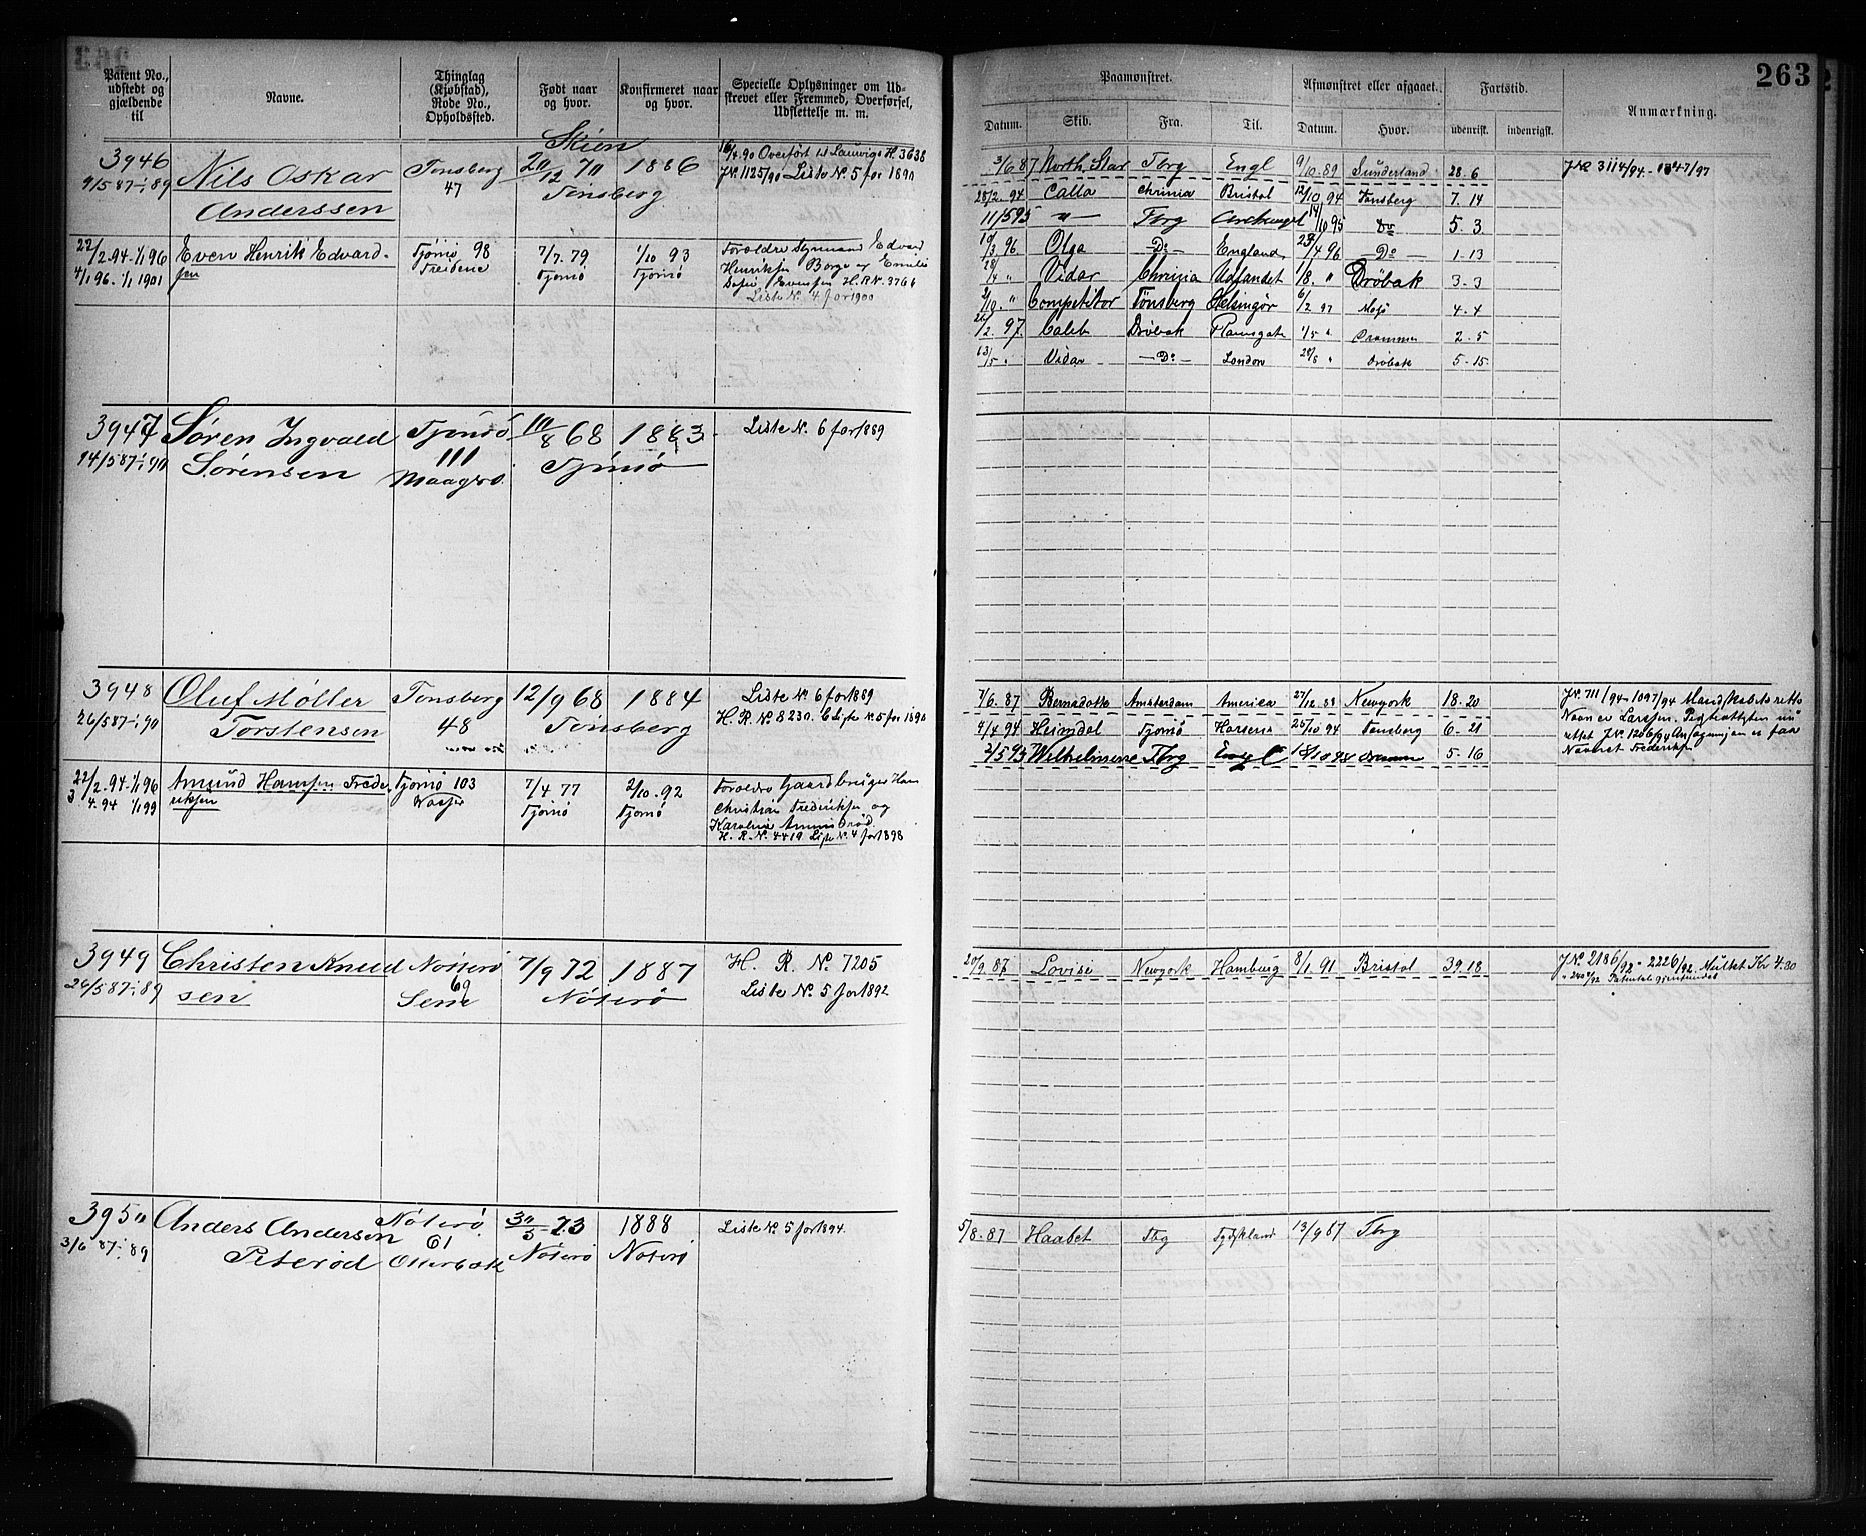 263
Patent No., udstedt og gjældende til
Navne.
Thinglag (Kjøbstad), Rode No., Opholdssted.
Født naar og hvor.
Konfirmeret naar og hvor.
Specielle Oplysninger om Udskrevet eller Fremmed, Overførsel, Udslettelse m. m.
Paamønstret.
Afmønstret eller afgaaet.
Fartstid.
Anmærkning.
Datum.
Skib.
Fra.
Til.
Datum.
Hvor.
udenrigsk.
indenrigsk.
3946
Nils Oskar
Anderssen
Tønsberg
47
Skien
20/12 70
1886
Tønsberg
Overført til Laurvigs H. 3638
J.N. 1125/90 Liste N. 5 for 1890
3/6 87 North Star Tbrg Engl 9/10 89 Sunderland 28.6
28/2 94 Calla Chrinia Bristol 12/10 94 Tønsberg 7.14
11/5 95 " Tbrg Archangel 14/10 95 Do 5.3
Olga Do England 23/4 96 Do 1-13
Vidar Chrinia Udlandet 1/8 " Drøbak 3-3
Competitor Tønsberg Helsingør 6/2 97 Mosś 4-4
26/2 97 Caleb Drøbak Ramsgate 1/5 " Drammen 2-5
Vidar Do London Drøbak 5-15
22/2 94 1/1 96
4/1 96 1/1 1901
Even Henrik Edvard-
sen
Tjømø 98
7/7 79
Tjømø
1/10 93
Tjømø
Forældre Sømand Edvard
Henriksen Borge og Emilie
Sofie Evensen H.R.N. 3766
Liste N. 4 for 1900
3947
14/5 87 1/1 90
Søren Ingvald
Sørensen
Tjømø
111
Maagerø
10/8 68
1883
Tjømø
Liste N. 6 for 1889
3948
26/5 87 1/1 90
Oluf Møller
Torstensen
Tønsberg
48
12/9 68
1884
Tønsberg
Liste N. 6 for 1889
H. R. N. 8230. Liste N. 5 for 1890
7/6 87 Bernadotte Amsterdam America 27/12 88 Newyork 18-20
4/4 94 Heimdal Tjømø 25/10 94 Tønsberg 6-21
2/5 95 Wilhelmine Tbrg Engl 5-16
J.N. 711/94 1097/94 Mandskabets rette
Navn er Larssen.
rettet J.N. 1206/94
Navnet Frederiksen
22/2 94 1/1 96
4.94 1/1 99
Amund Hansen Frede-
riksen
Tjømø 103
7/4 77
Tjømø
2/10 92
Tjømø
Forældre Gaardbruger Hans
Christian Frederiksen og
H. R. N. 4419 Liste N. 4 for 1898
3949
26/5 87 1/1 89
Christen Knud
sen
Nøtterø
69
Sem
7/9 72
1887
Nøterø
H. R. N. 7205
Liste N. 5 for 1892
20/9 87 Lovise Newyork Hamburg 8/1 91 Bristol 39 18
J.N. 2186/92 - 2226/92 Multet Kr 4.80
3950
3/6 87 1/1 89
Anders Andersen
Peterød
Nøterø
61
Otterbæk
30/5 73
Nøterø
1888
Nøterø
Liste N. 5 for 1894.
5/8 87 Haabet Tbg Tydskland 13/9 87 Tbrg